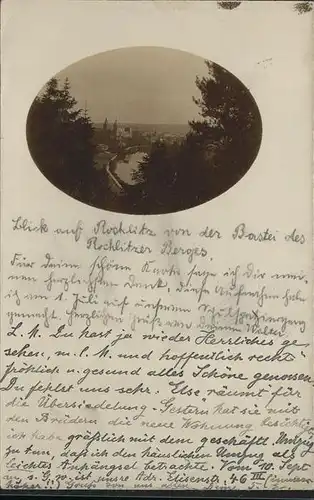 Blick auf Rochlitz von der Bastei des
Rochlitzer Berges.
Für Deine schöne Karte sage ich Dir mei-
nen herzlichsten Dank, diese Aufnahmen habe
ich am 1. Juli auf unserem Schulspaziergang
gemacht. Herzlichen Gruß von Deinem Walter.
L. M. Du hast ja wieder Herrliches ge-
sehen, m. l. M. und hoffentlich recht
fröhlich u. gesund alles Schöne genossen.
Du fehlst uns sehr. Else räumt für
die Übersiedelung. Gestern hat sie mit
den Brüdern die neue Wohnung besichtigt
ich habe gräßlich mit dem geschäftl. Umzug
zu tun, daß ich den häuslichen Umzug als
leichtes Anhängsel betrachte. Vom 10. Sept
an s. G. w. ist unsre Adr. Elisenstr. 46 III
höher!! Gruß von uns allen